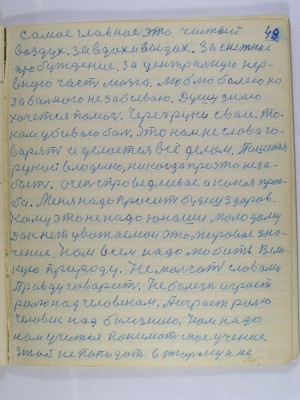 48
самое главное это чистый
воздух. За вдох и выдох. За снежное
пробуждение. За центральную нер-
вную часть мозга. Люблю болесного
забытого незабываю. Душу знаю
хочется помоч. Через руки своим, то-
ком убиваю бол. Это нам не слова го-
варят и делается всё делом. Пишется
рукой владыко, никогда про это незе-
быть. очен справедливае и какая прось-
ба. Меня надо просит будеш здаров.
Кому это не надо юнаши молодому
Дак нет уважаемои это мировое зна-
чение. Нам всем надо любить Вели-
кую природу. Не молчат словами
Правду говарит. Не болезн играет
ролю над человекам. А играет ролю
человек над болезнию. Нам надо
нам учится понимат мое учение
чтоб не попадат в тюрму и не